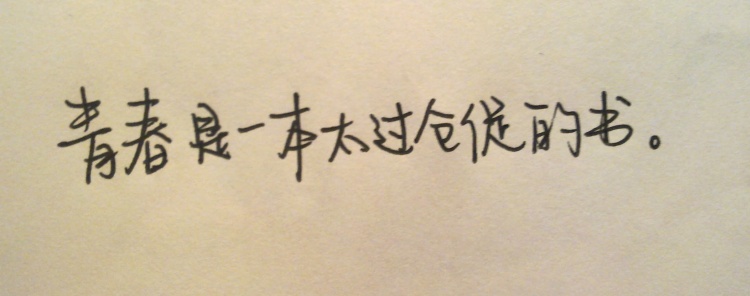 青春是一本太过仓促的书。